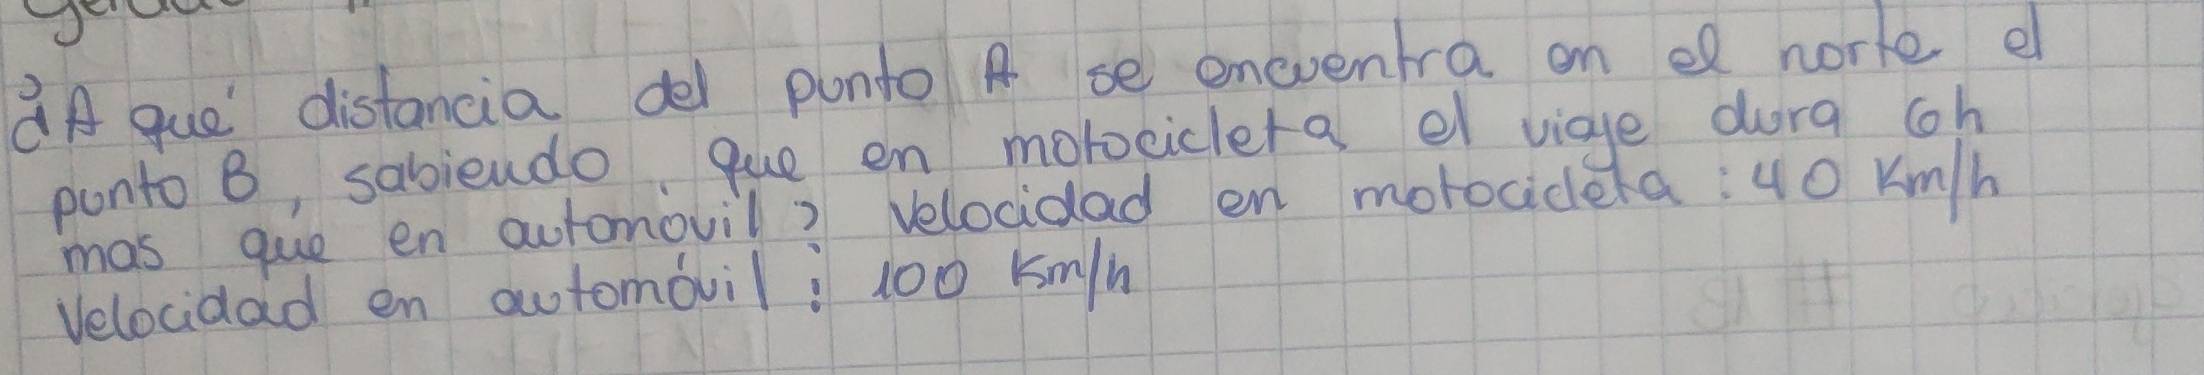 ¿A qué distancia del punto A se encuentra en el norte el
punto B, sabiendo que en motocicleta el viaje dura 6h
mas que en automóvil? Velocidad en motocicleta : 40 Km/h
Velocidad en automóvil : 100 Km/h